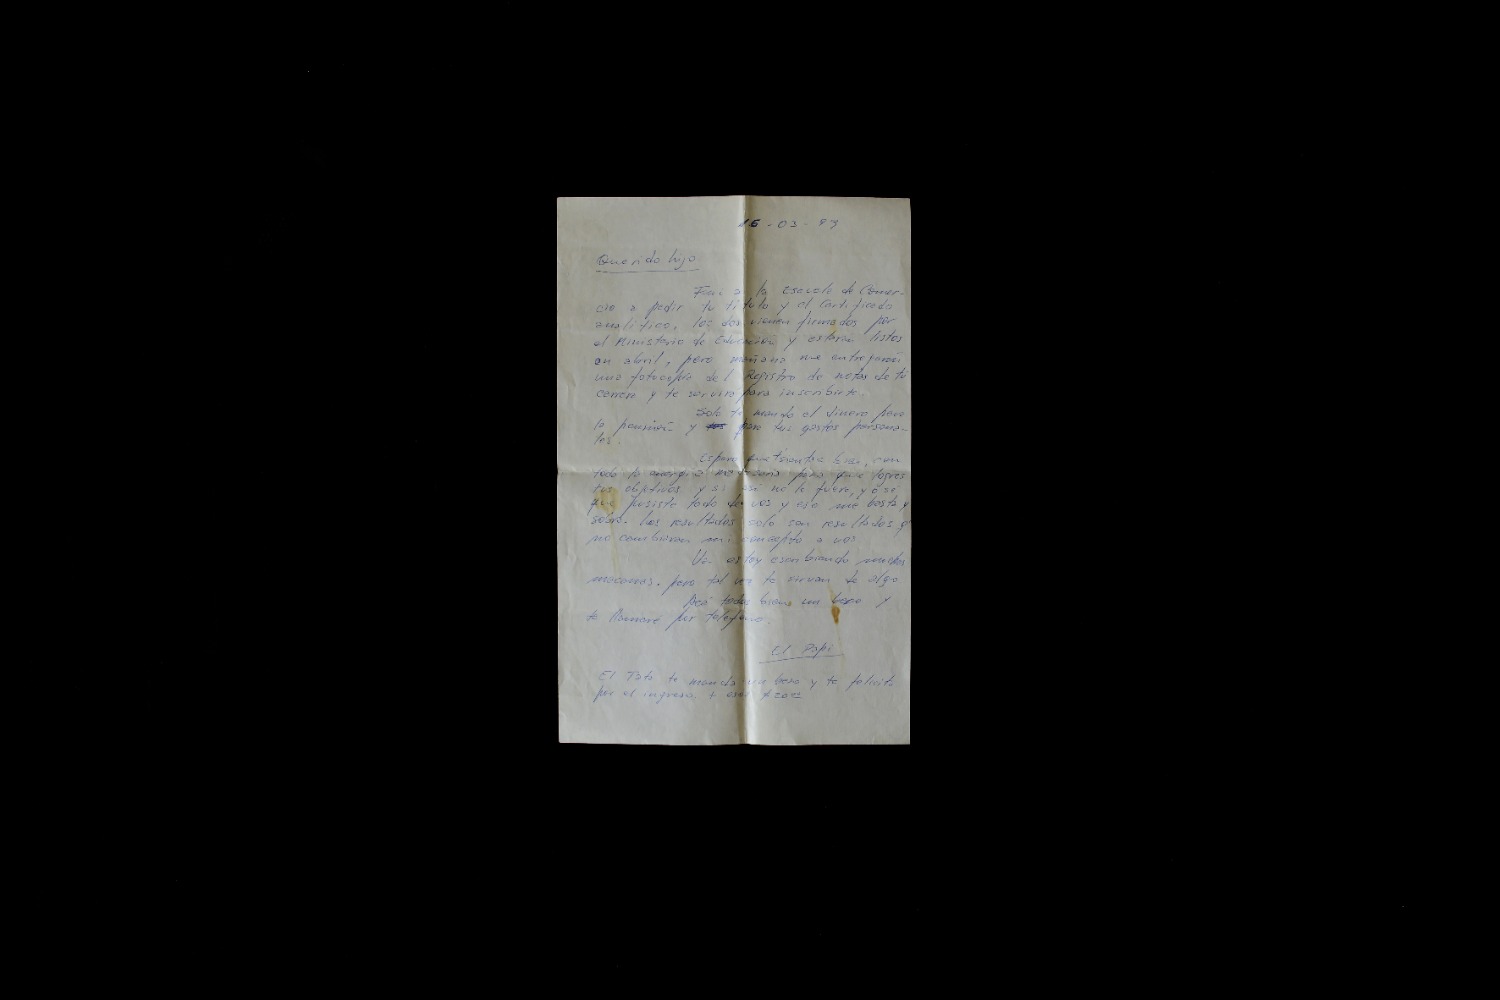 16-03-99
Querido hijo
Fui a la escuela de Comer-
cio a pedir tu título y el Certificado
analítico, los dos vienen firmados por
el Ministerio de Educación y estarán listos
en abril, pero mañana me entregarán
una fotocopia del Registro de notas de tu
carrera y te servirá para inscribirte.
Solo te mando el dinero para
la pensión y para tus gastos persona-
les.
Espero que te sientas bien, con
toda la energía necesaria para que logres
tus objetivos y si así no lo fuere, yo sé
que pusiste todo de vos y eso me basta y
sobra. Los resultados solo son resultados y
no cambiarán mi concepto a vos
Ya estoy escribiendo muchas
macanas. pero tal vez te sirvan de algo
Acá todos bien un beso y
te llamaré por teléfono.
El Papi
El Tata te manda un beso y te felicita
por el ingreso. + esos